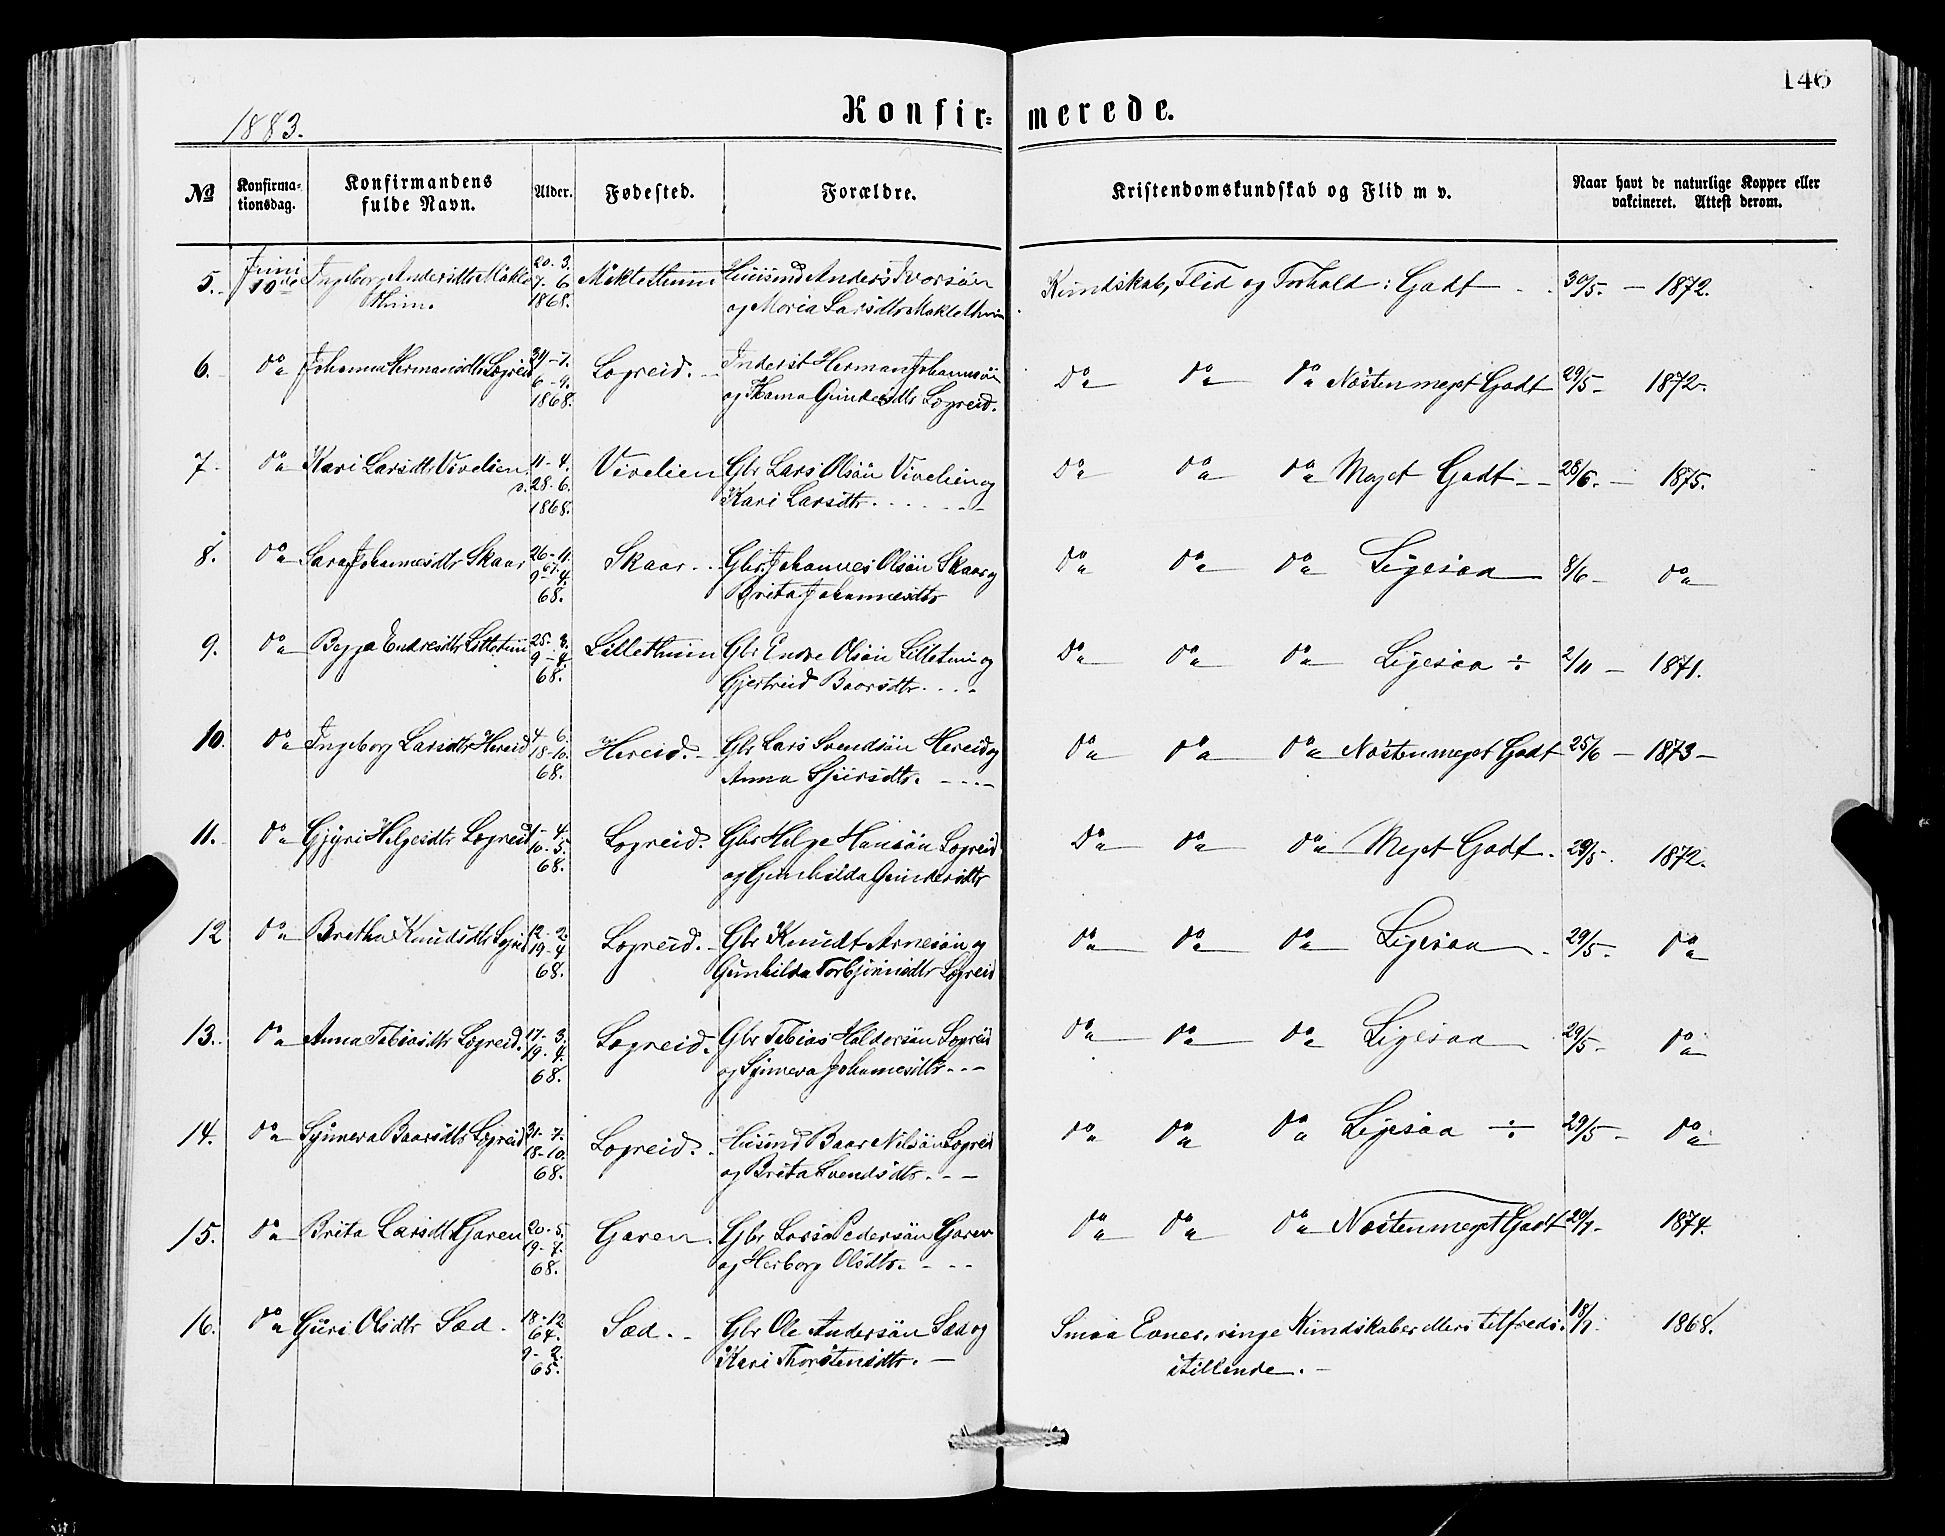 146
1883.
Konfir= merede.
No Konfirma= tionsdag. Konfirmandens fulde Navn. Alder. Fødested. Forældre. Kristendomskundskab og Flid m v. Naar havt de naturlige Kopper eller vakcineret. Attest derom.
5. Juni 20-3. Husmd Anders Ivorsön Kundskab, Flid og Forhold: Godt 30/5. - 1872.
10de Ingeborg Andersdtr 7-6
1868. og Larsdtr
6. Do Johanna Hermansdtr Legreid 24-7. Legreid. Inderst Herman Johannesön Do Do Do Næsten meget Godt 29/5- 1872.
6-9.
1868. og Gundersdtr Legreid.
7. Do Kari Larsdtr Vivelien 11-4. Vivelien Gbr Lars Olsön Vivelien og Do Do Do Meget Godt - 28/6. - 1875.
d. 28-6. Kari Larsdtr.
1868.
8. Do Sara Johannesdtr Skaar 26-11. Skaar. Gbr. Johannes Olsön Skaar og Do Do Do Ligesaa 8/6- Do
67.
9-4. Brita Johannesdtr
68.
9. Do Endresdtr Lilletun 25-3. Lillethun Gbr Endre Olsön Lilletun og Do Do Do Ligesaa ÷ 2/11 - 1871.
9-4. Gjertrud Baarsdtr.
68.
10. Do Ingeborg Larsdtr Hereid 4-6. Hereid. Gbr Lars Svendsön Hereid og Do Do Do Næstenmeget Godt 25/6 - 1873-
18-10. Anna Sjursdtr.
68.
11. Do Gjyri Helgesdtr Legreid 1-4. Legreid. Gbr Helge Hansön Legreid Do Do Do Meget Godt. 29/5. 1872.
10-5. og Gunhilda Gundersdtr
68.
12 Do Bretha Knudsdtr Legreid 12-2. Legreid. Gbr Knudt Arnesön og Do Do Do Ligesaa. 29/5- Do
19-4 Gunhilda Torbjörnsdtr Legreid
68.
13. Do Anna Tobiasdtr Legreid. 17-3. Legreid. Gbr Tobias Haldorsön Legreid Do Do Do Ligesaa 29/5- Do
19-4. og Synneva Johannesdtr
68.
14. Do Synneva Baarsdtr Legreid 31-7. Legreid. Husmd Baar Nilsön Legreid Do Do Do Ligesaa ÷ 29/5- Do
18-10. og Brita Svendsdtr.
68.
15. Do Brita Larsdtr Garen 20-5. Garen. Gbr Lars Pedersön Garen Do Do Do Næstenmeget Godt 20/7- 1874.
19-7. og Herborg Olsdtr.
68.
16. Do Guri Olsdtr Sæd. 18-12 Sæd. Gbr Ole Andersön Sæd og Smaa Evner, ringe Kundskaber ellers tilfreds- 18/7. 1868.
64. Kari Thorstensdtr. stillende.
9-2.
65.